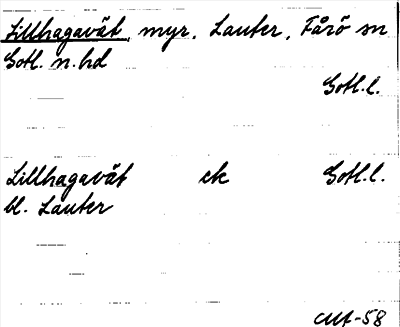 Lillhagavät, myr, Lauter, Fårö sn
Gotl. n. hd
Gotl. l.
Lillhagavät ek Gotl. l.
bl. Lauter
CMA-58